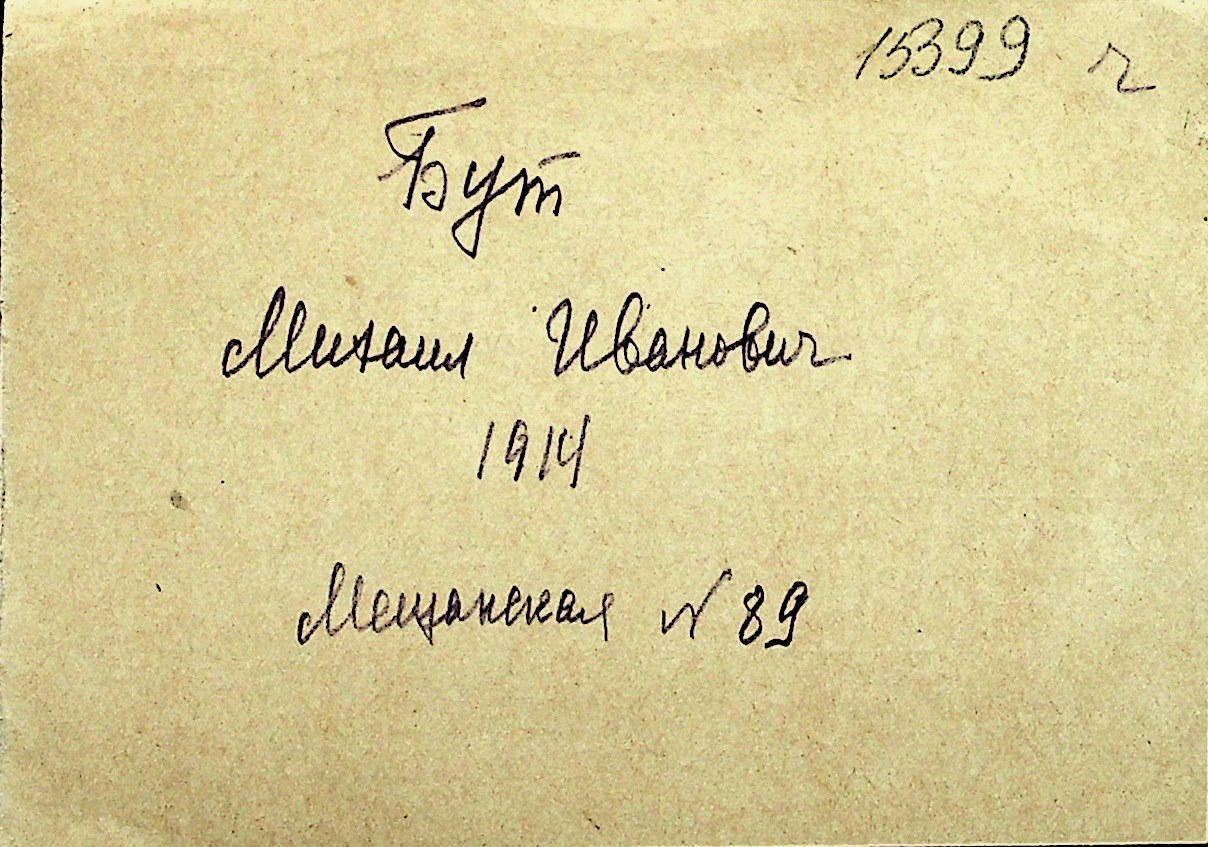 15399 ч
Бут
Михаил Иванович
1914
Мещанская № 89